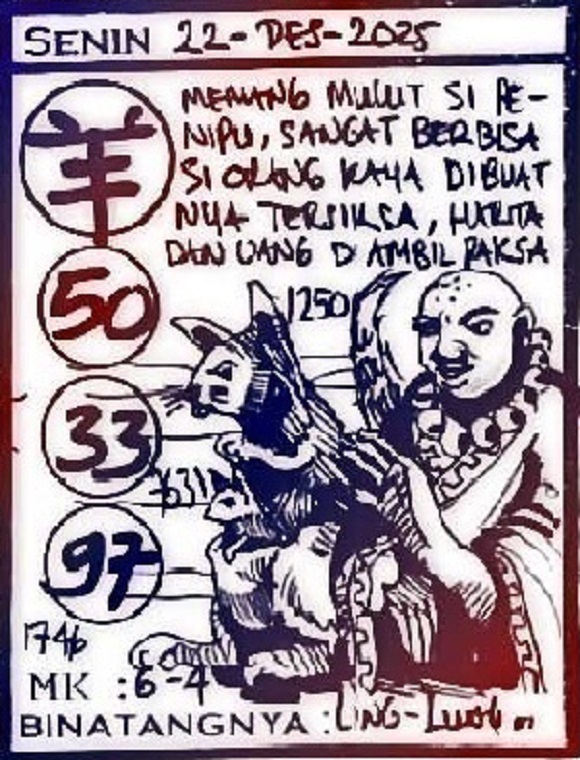 SENIN 22-DES-2025
羊
MEMANG MULUT SI PE-
NIPU, SANGAT BERBISA
SI ORANG KAYA DIBUAT
NYA TERSIKSA, HARTA
DAN UANG D AMBIL PAKSA
50
1250
33
1631
97
1746
MK : 6-4
BINATANGNYA :